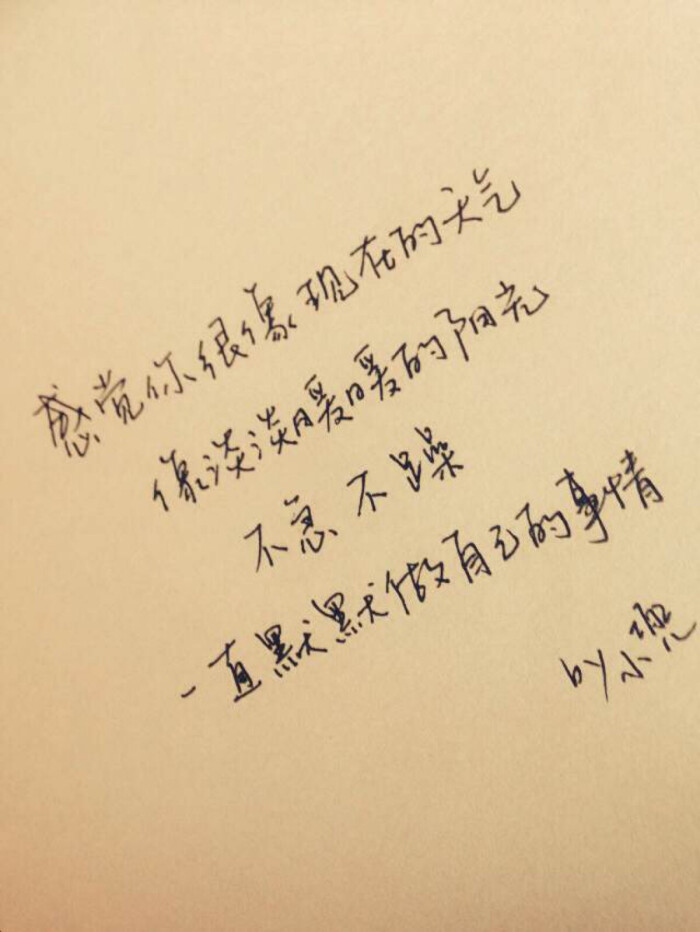 感觉你很像现在的天气
像淡淡暖暖的阳光
不急不躁
一直默默做自己的事情
by 小